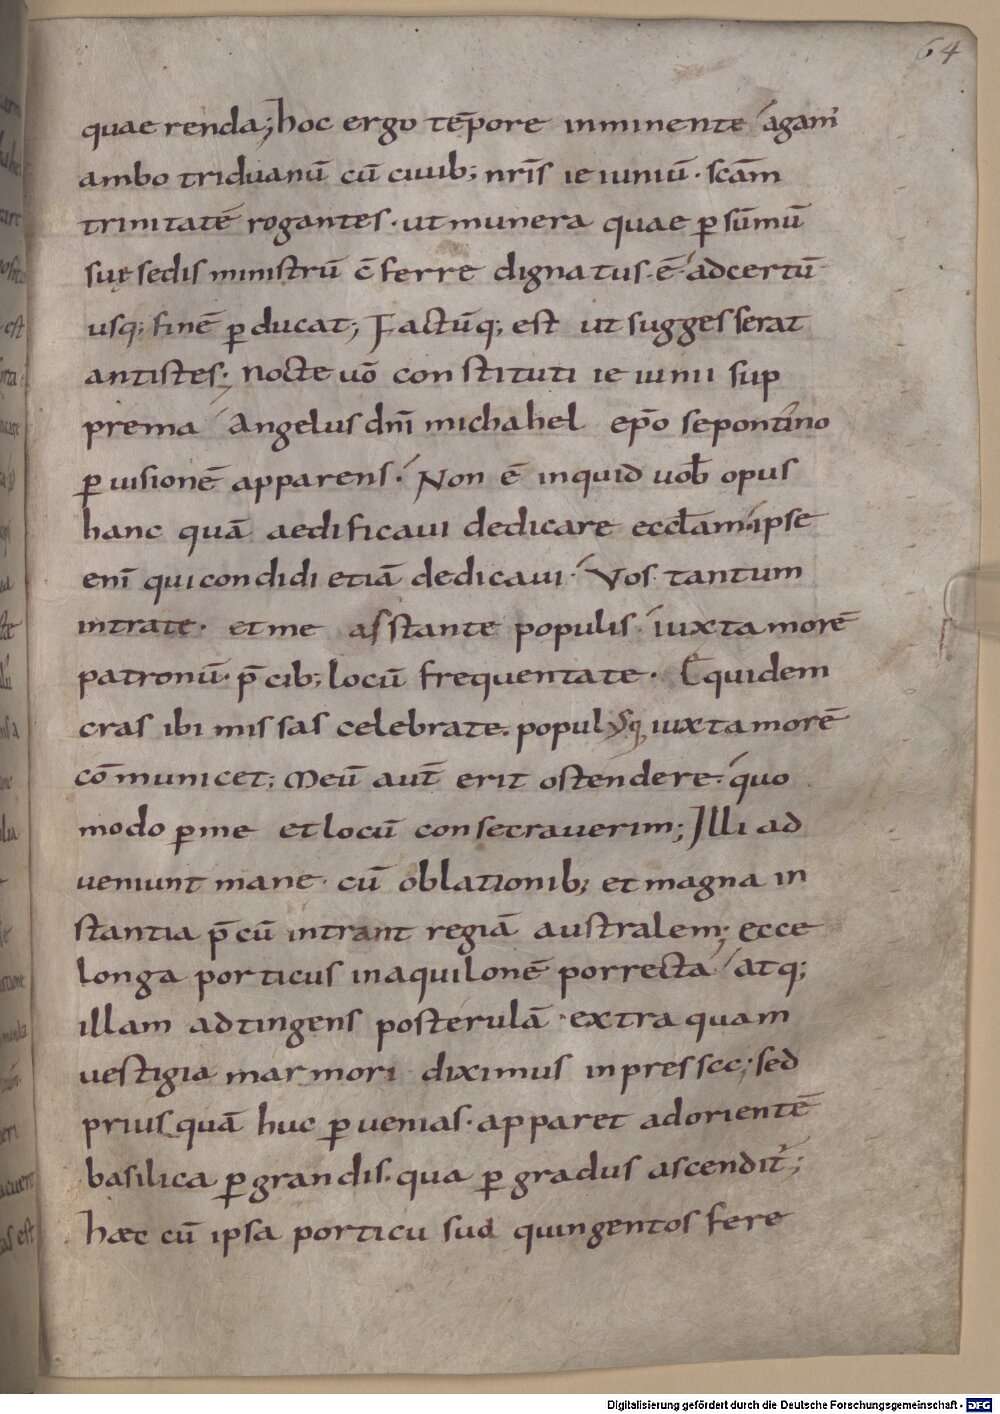 64
quae renda; hoc ergo tēpore inminente agam̉
ambo triduanū cū ciuib; nr̄is ieiuniū · scām
trinitatē rogantes · ut munera quae ꝑ sūmū
suę sedis ministrū c̄ferre dignatus · ē · ad certū
usq; finē ꝑducat; Factūq; est ut suggesserat
antistes; Nocte uō constituti ieiunii sup
prema Angelus dn̄i michahel ep̄o sepontino
ꝑ uisionē apparens · Non ē inquid uob̄ opus
hanc quā aedificaui dedicare eccłam · ipse
eni̅ qui condidi etiā dedicaui · Vos · tantum
intrate · et me asstante populis iuxta morē
patronū · p̄cib; locū frequentate · Equidem
cras ibi missas celebrate · populusq; iuxta morē
cōmunicet; Meū aut̄ erit ostendere · quo
modo ꝑ me et locū consecrauerim; Illi ad
ueniunt mane · cū oblationib; et magna in
stantia p̄cū intrant regiā australem; ecce
longa porticus in aquilonē porrecta atq;
illam adtingens posterulā · extra quam
uestigia marmori diximus inpressa; sed
prius quā huc ꝑuenias · apparet ad orientē
basilica ꝑgrandis · qua ꝑ gradus ascendit̉;
haec cū ipsa porticu sua quingentos fere
Digitalisierung gefördert durch die Deutsche Forschungsgemeinschaft - DFG